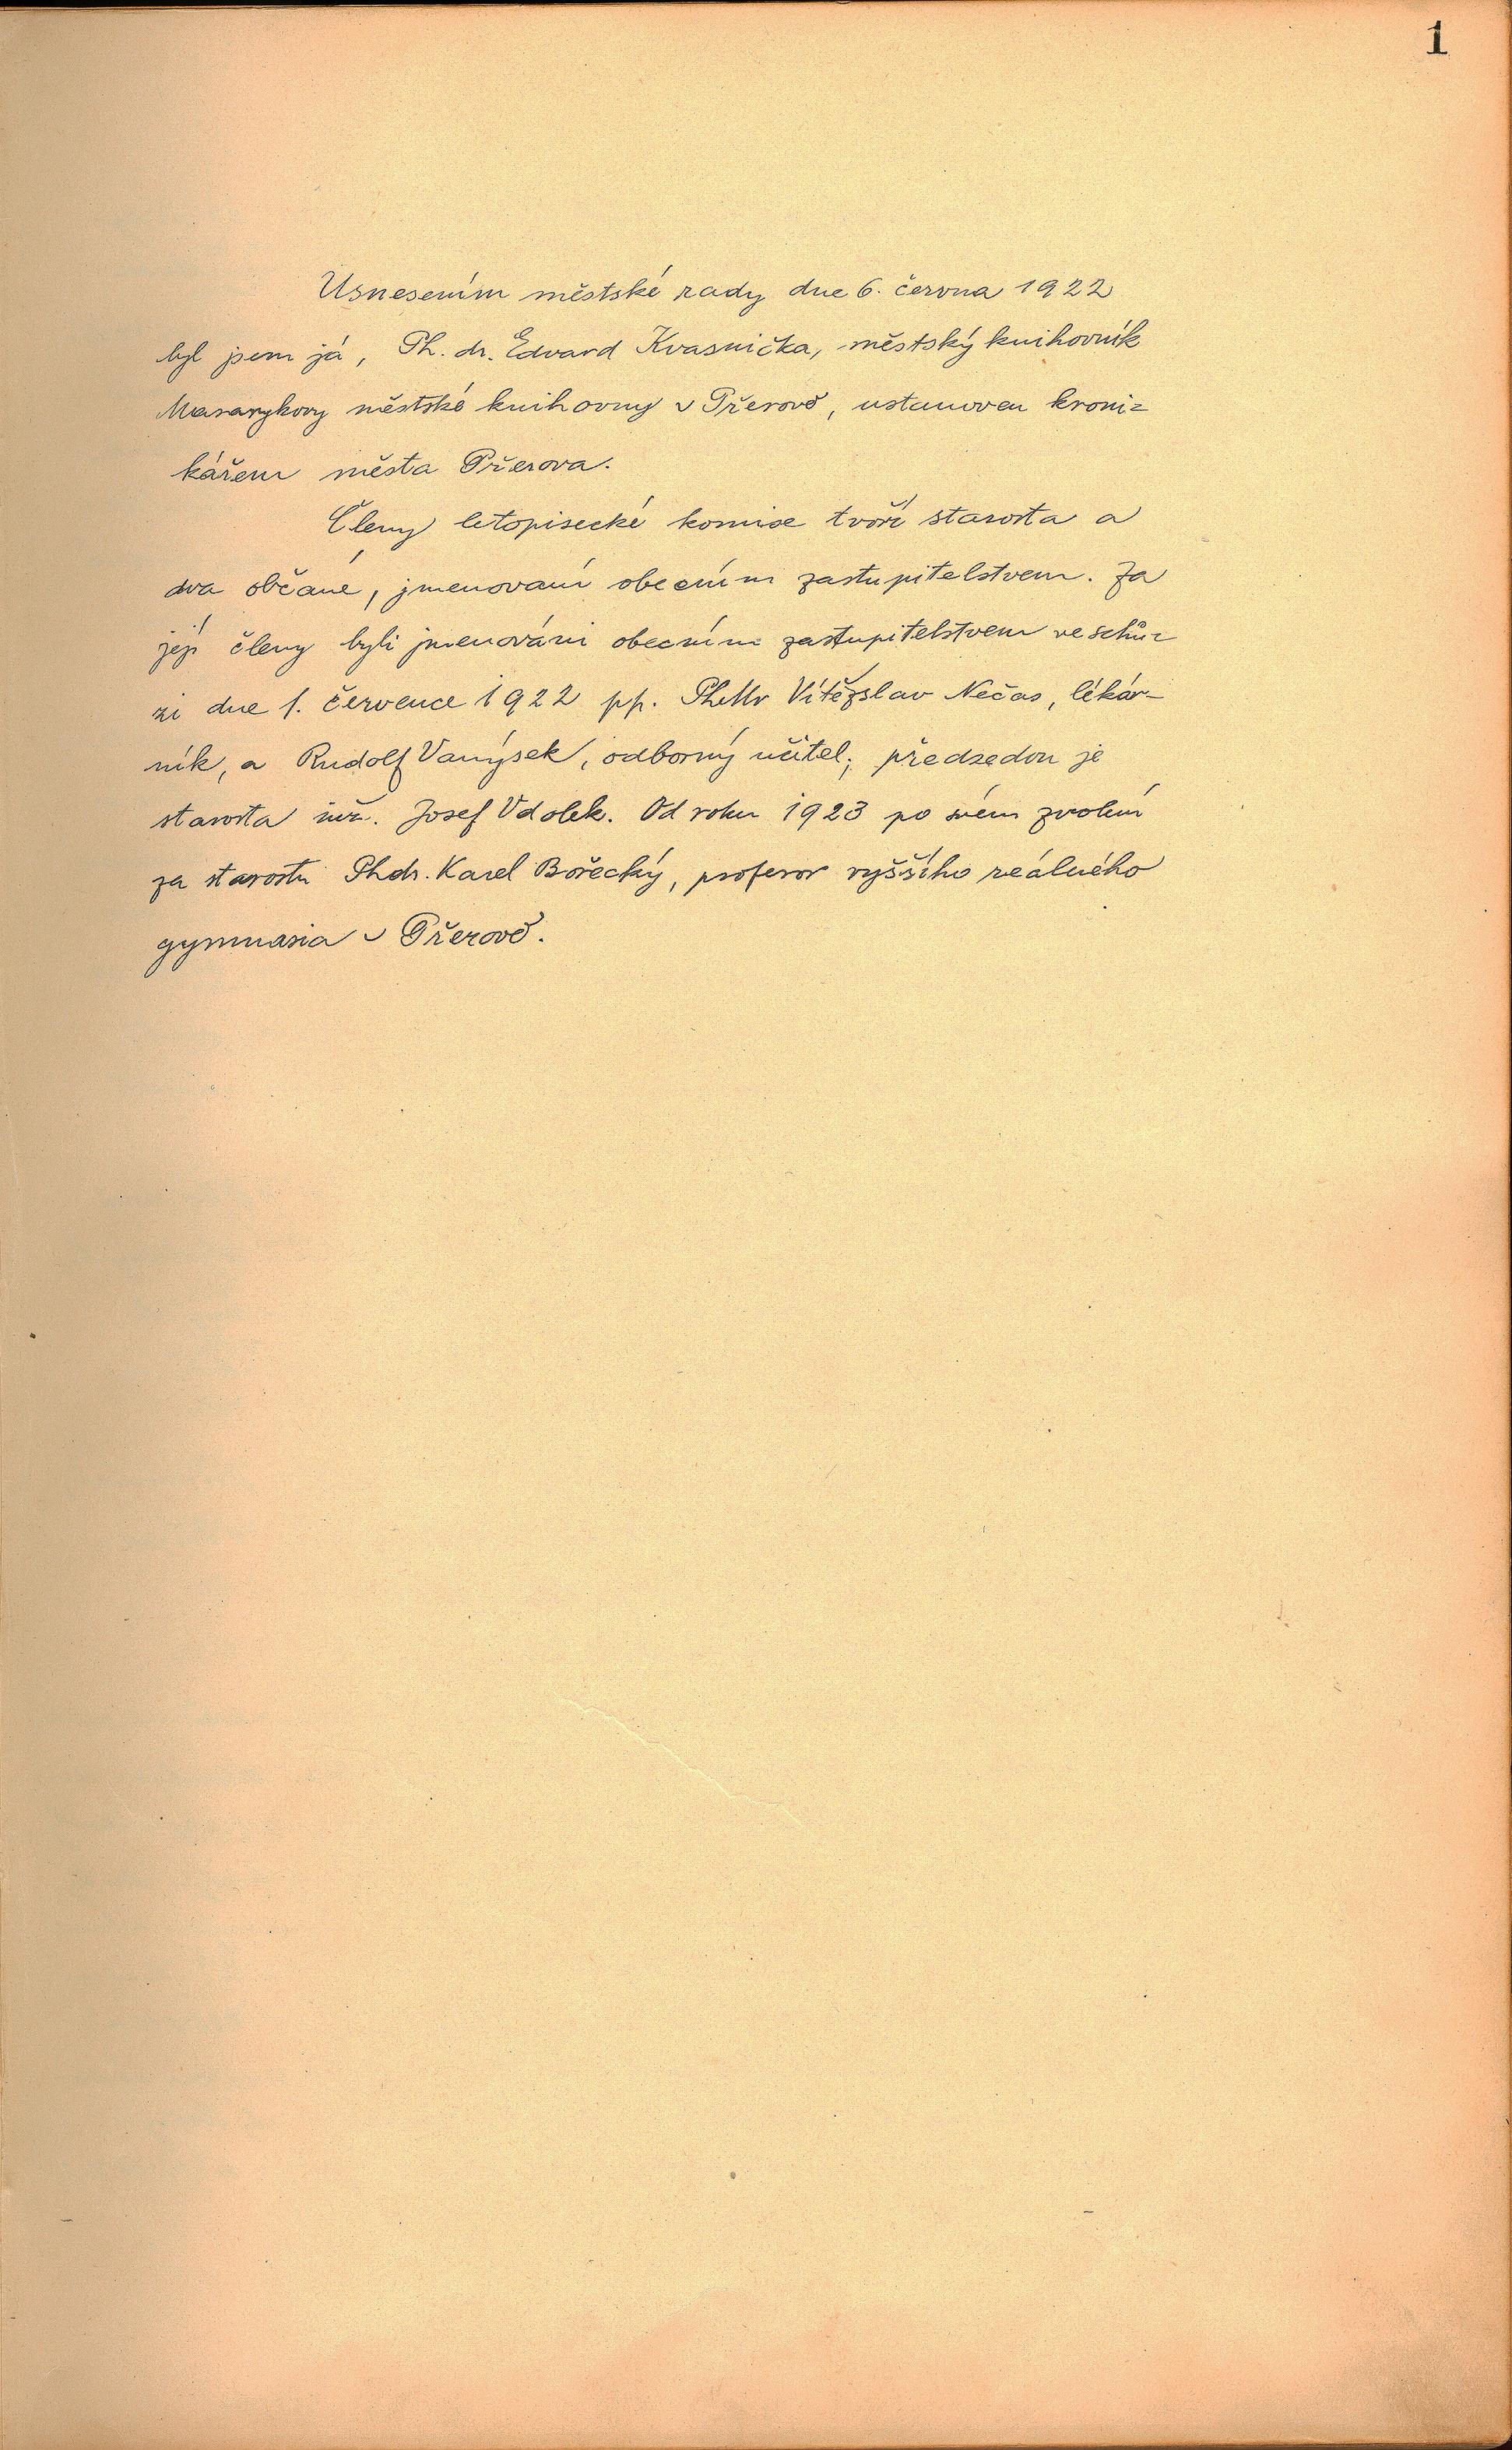 1
Usnesením městské rady dne 6. června 1922
byl jsem já, Ph. dr. Edvard Kvasnička, městský knihovník
Masarykovy městské knihovny v Přerově, ustanoven kroni=
kářem města Přerova.
Členy letopisecké komise tvoří starosta a
dva občané, jmenovaní obecním zastupitelstvem. Za
její členy byli jmenováni obecním zastupitelstvem ve schů=
zi dne 1. července 1922 pp. PhMr Vítězslav Nečas, lékár-
ník, a Rudolf Vanýsek, odborný učitel; předsedou je
starosta inž. Josef Vdolek. Od roku 1923 po svém zvolení
za starostu Phdr. Karel Bořecký, profesor vyššího reálného
gymnasia v Přerově.